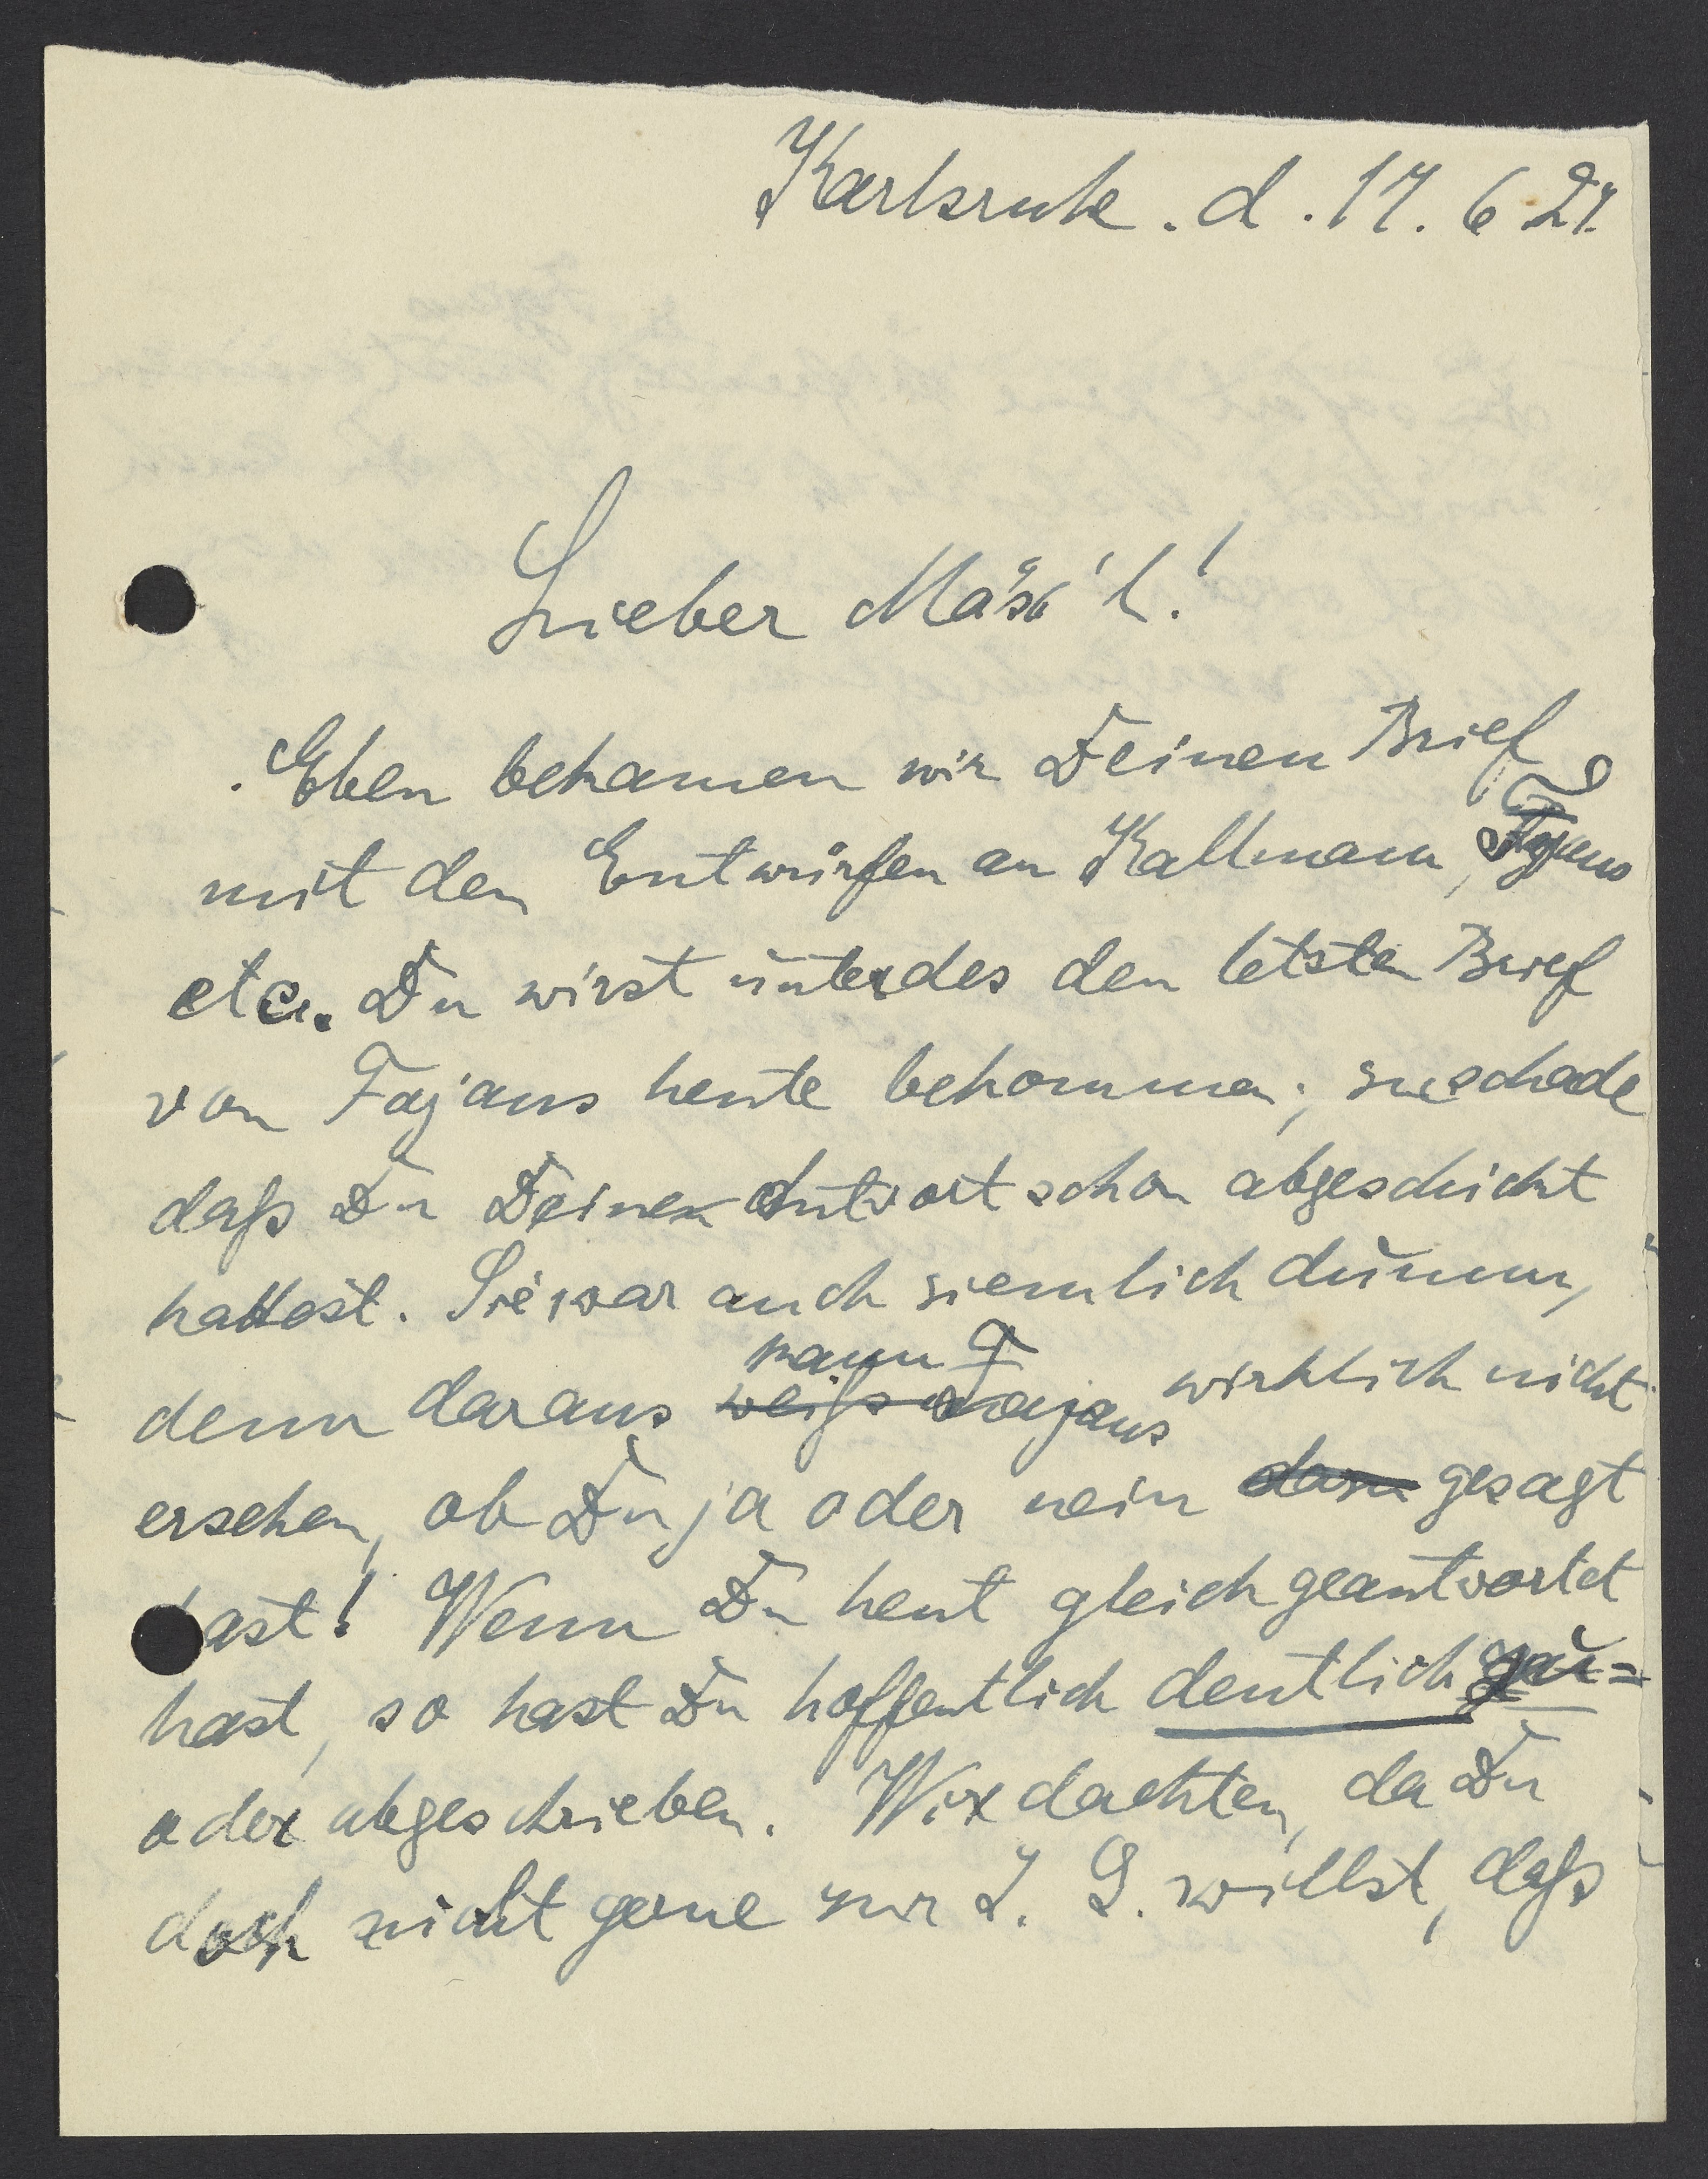 Karlsruhe. d. 17. 6 27.
Lieber Mäsi'l!
Eben bekamen wir Deinen Brief
mit den Entwürfen an Kallmann, Fajans
etc. Du wirst unterdes den letzten Brief
von Fajans heute bekommen; schade
daß Du Deine Antwort schon abgeschickt
hattest. Sie war auch ziemlich dumm,
denn daraus kann Fajans wirklich nicht
ersehen, ob Du ja oder nein gesagt
hast! Wenn Du heut gleich geantwortet
hast, so hast Du hoffentlich deutlich zu=
oder abgeschrieben. Wir dachten, da Du
doch nicht gerne zur I. G. willst, daß